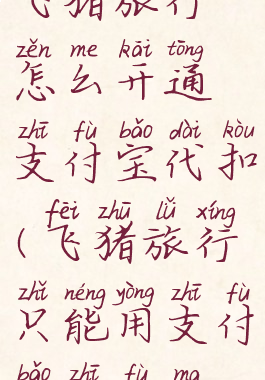 飞猪旅行
zěn me kāi tōng
怎么开通
zhī fù bǎo dài kòu
支付宝代扣
fēi zhū lǚ xíng
(飞猪旅行
zhǐ néng yòng zhī fù
只能用支付
bǎo zhī fù ma